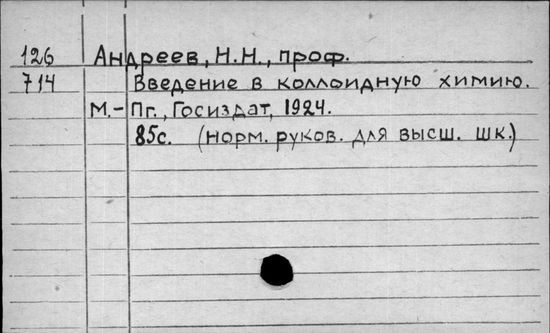 126 Андреев, Н.Н., проф.
714 Введение в коллоидную химию.
М.-Пг., Госиздат, 1924.
85с. (норм. руков. для высш. шк.)